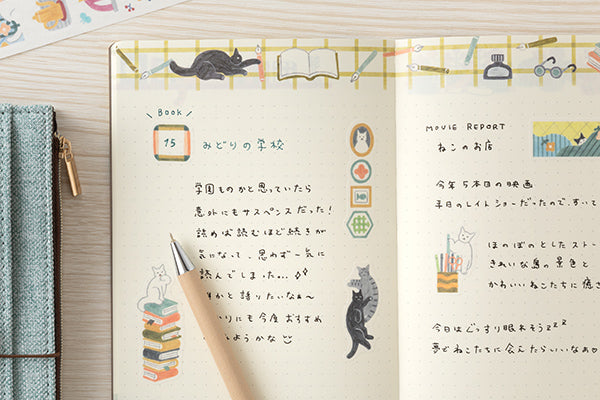 BOOK
15
みどりの学校
学園ものかと思っていたら
意外にもサスペンスだった!
読めば読むほど続きが
気になって、思わず一気に
読んでしまった...
かと語りたいなぁ〜
りにも今度おすすめ
ようかな
MOVIE REPORT
ねこのお店
今年5本目の映画
平日のレイトショーだったので、すいて
ほのぼのとしたストー
きれいな島の景色と
かわいいねこたちに癒さ
今日はぐっすり眠れそうzzz
夢でねこたちに会えたらいいなぁ